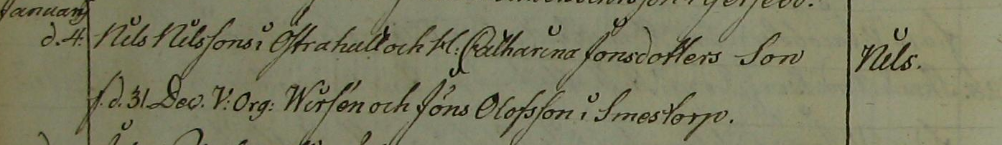 Januarij
d. 4. Nils Nilssons i Östrahult och H: Catharina Jonsdotters Son Nils.
f. d. 31 Dec. V: Org: Wirsén och Jöns Olofsson i Smestorp.